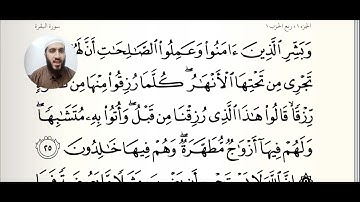 سورة البقرة
الجزء ١ ربع الحزب ١
وَبَشِّرِ ٱلَّذِينَ ءَامَنُوا۟ وَعَمِلُوا۟ ٱلصَّـٰلِحَـٰتِ أَنَّ لَهُمْ
تَجْرِى مِن تَحْتِهَا ٱلْأَنْهَـٰرُ ۖ كُلَّمَا رُزِقُوا۟ مِنْهَا مِن
رِّزْقًا ۙ قَالُوا۟ هَـٰذَا ٱلَّذِى رُزِقْنَا مِن قَبْلُ ۖ وَأُتُوا۟ بِهِۦ مُتَشَـٰبِهًا ۖ
وَلَهُمْ فِيهَآ أَزْوَٰجٌ مُّطَهَّرَةٌ ۖ وَهُمْ فِيهَا خَـٰلِدُونَ ٢٥